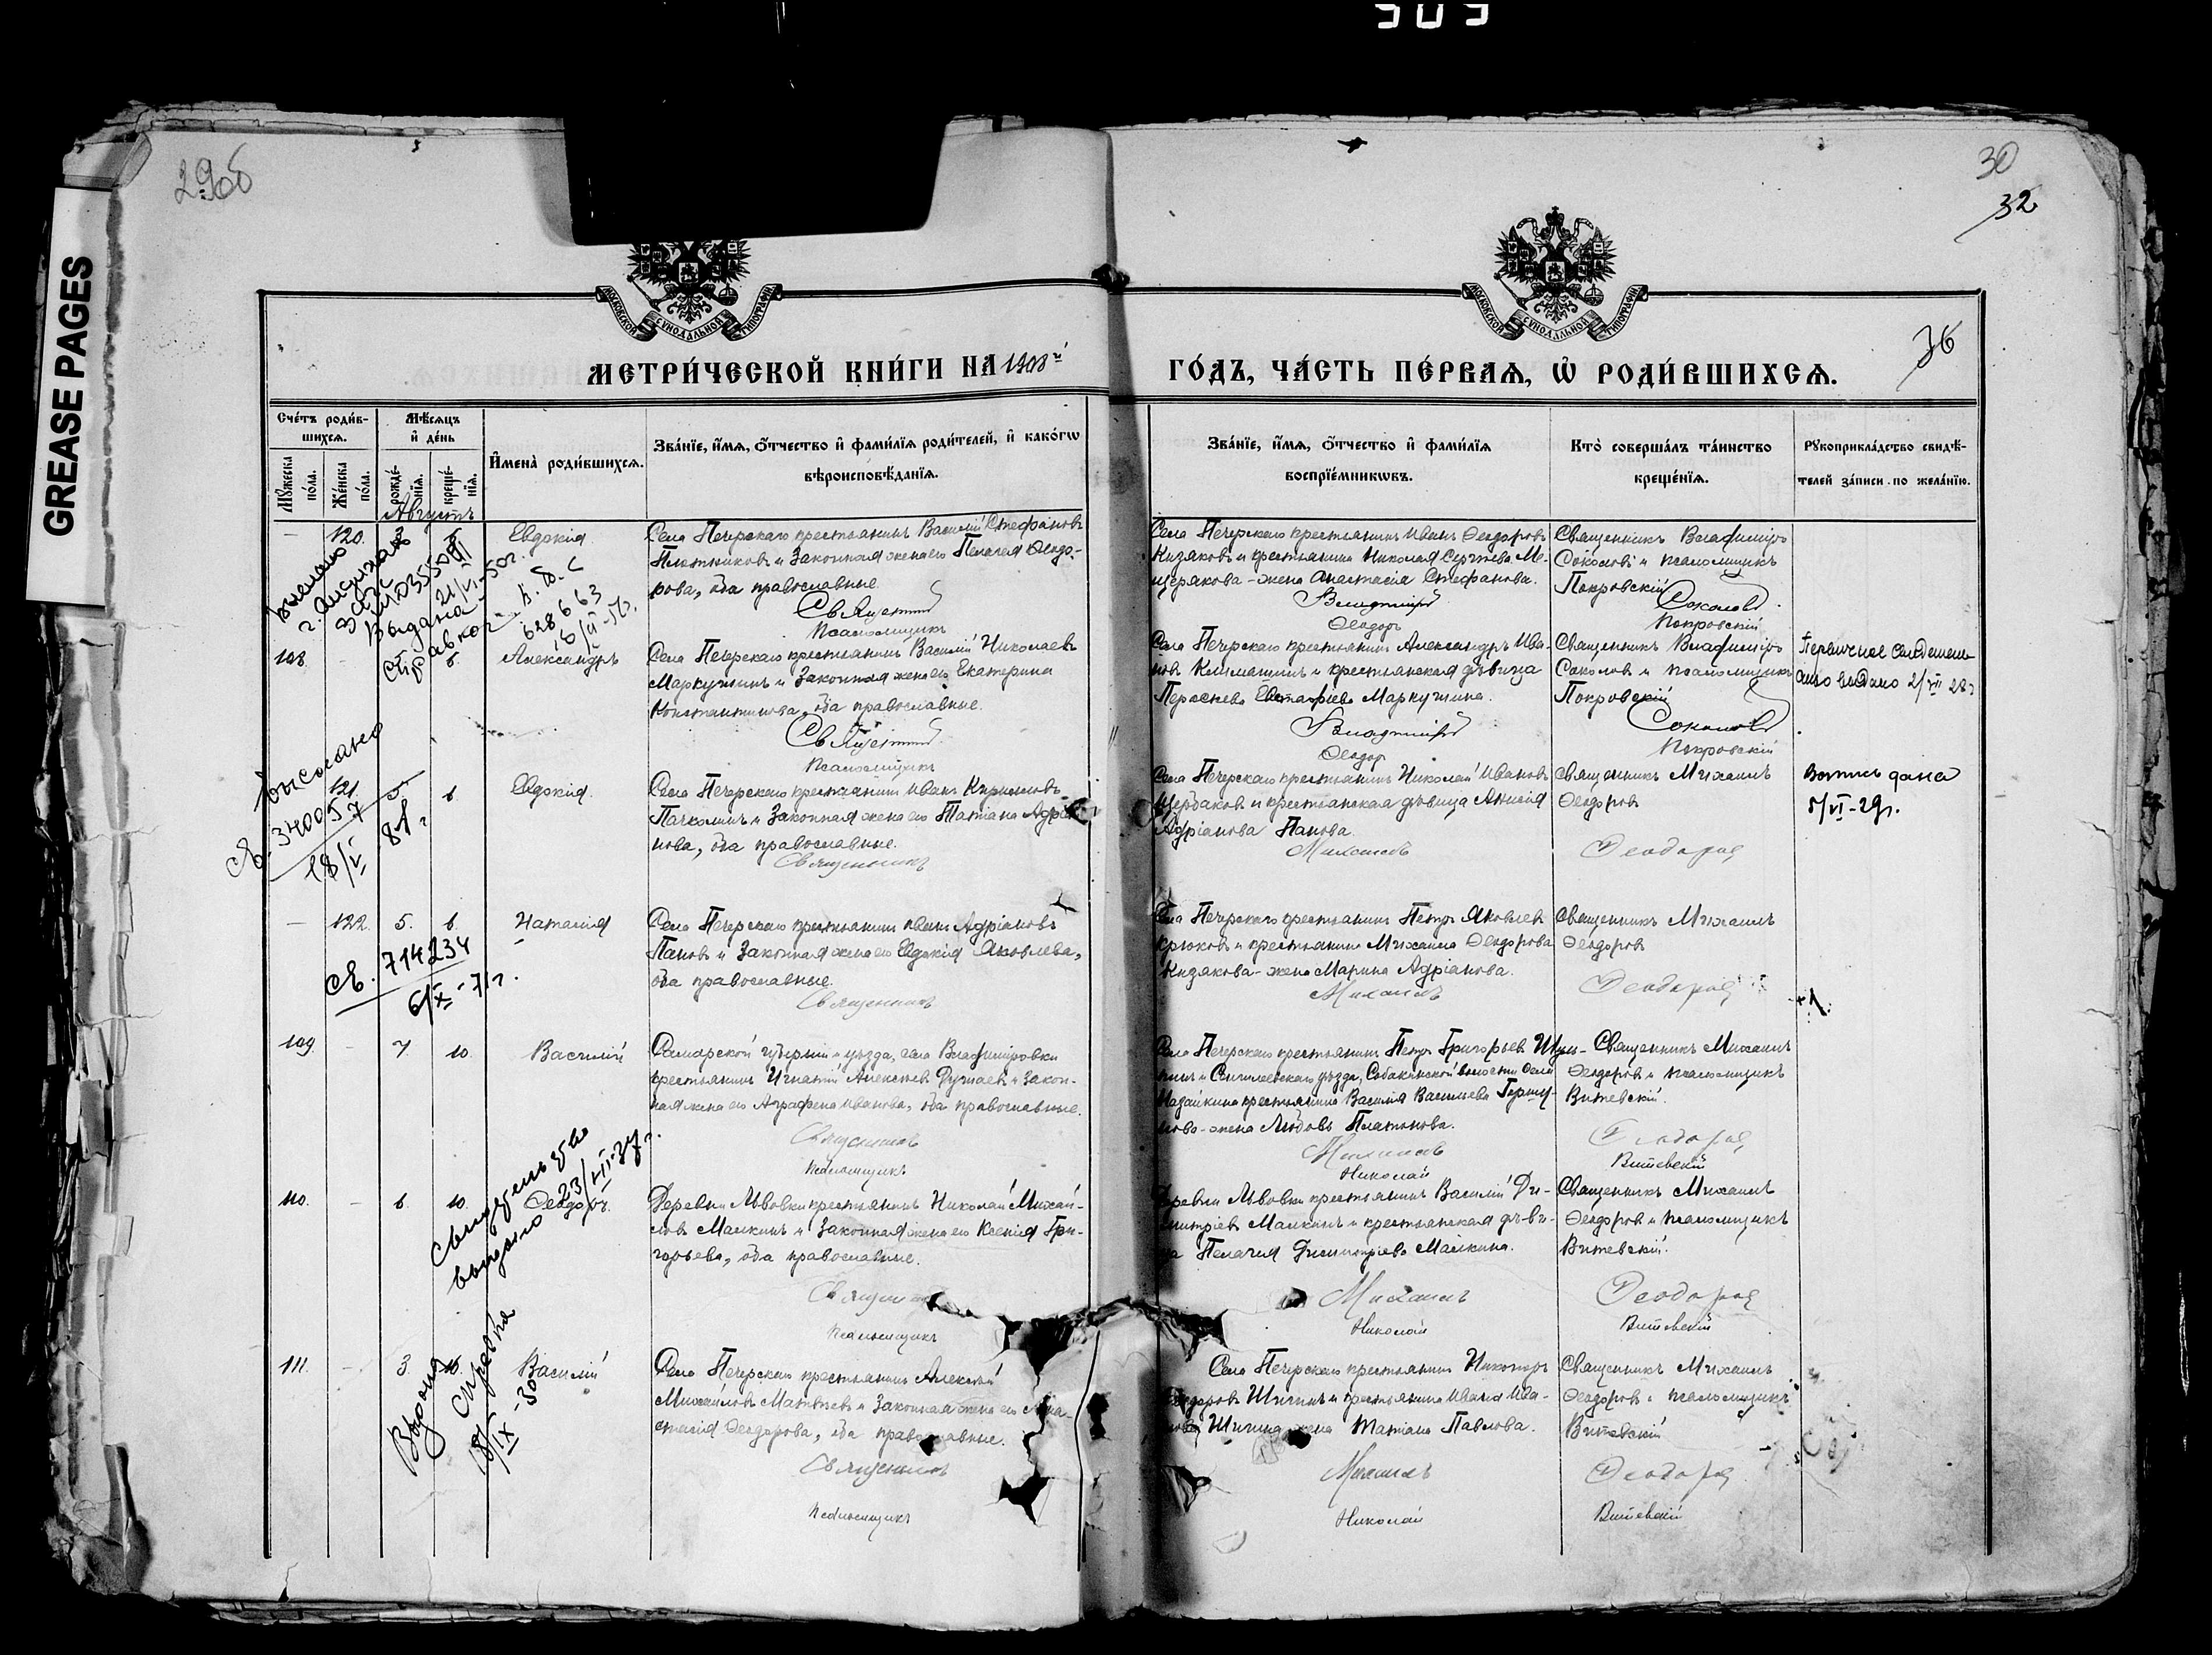 GREASE PAGES
29об
30
32
36
МОСКОВСКОЙ СѴНОДАЛЬНОЙ ТИПОГРАФІИ
МОСКОВСКОЙ СѴНОДАЛЬНОЙ ТИПОГРАФІИ
МЕТРИ́ЧЕСКОЙ КНИ́ГИ НА 1908й
ГО́ДЪ, ЧА́СТЬ ПЕ́РВАѦ, Ѡ РОДИ́ВШИХСѦ.
Сче́тъ роди́в-
шихсѧ.
Мꙋ́жеска по́ла.
Же́нска по́ла.
Мѣ́сѧцъ
и де́нь
рожде́-
нїѧ.
креще́-
нїѧ.
И҆мена̀ роди́вшихсѧ.
Зва́нїе, и҆́мѧ, ѻ҆́тчество и҆ фами́лїѧ роди́телей, и҆ како́гѡ
вѣроисповѣ́данїѧ.
Зва́нїе, и҆́мѧ, ѻ҆́тчество и҆ фами́лїѧ
воспрїе́мникѡвъ.
Кто̀ соверша́лъ та́инство
креще́нїѧ.
Рꙋкоприкла́дство свидѣ́-
телей за́писи по жела́нїю.
Августъ
120.
3
Евдокія
Села Печерскаго крестьянинъ Василій Стефановъ
Плотниковъ и законная жена его Пелагея Ѳеодо-
рова, оба православные.
Священникъ
Псаломщикъ
Села Печерскаго крестьянинъ Иванъ Ѳеодоровъ
Кизяковъ и крестьянина Николая Сергѣева Ме-
щерякова - жена Анастасія Стефанова.
Владиміръ
Ѳеодоръ
Священникъ Владиміръ
Соколовъ и псаломщикъ
Покровскій
Соколовъ.
Покровскій
Выслано
Выдана
справка
21/VI-50г.
628663
108.
-
6.
Александръ
Села Печерскаго крестьянинъ Василій Николаевъ
Маркушинъ и законная жена его Екатерина
Константинова, оба православные.
Священникъ
Псаломщикъ
Села Печерскаго крестьянинъ Александръ Ива-
новъ Климашинъ и крестьянская дѣвица
Параскева Евстафіева Маркушина.
Владиміръ
Ѳеодоръ
Священникъ Владиміръ
Соколовъ и псаломщикъ
Покровскій
Соколовъ
Покровскій
Первичное свидетель-
ство выдано 2/VII 28г
121.
5.
6
Евдокія.
Села Печерскаго крестьянинъ Иванъ Кирилловъ
Пачколинъ и законная жена его Татіана Адріа-
нова, оба православные.
Священникъ
Села Печерскаго крестьянинъ Николай Ивановъ
Щербаковъ и крестьянская дѣвица Анисія
Адріанова Панова.
Михаилъ
Священникъ Михаилъ
Ѳеодоровъ
Ѳеодоровъ
Выпись дана
5/VI-29г.
Высолано
370057
18/V
81г
-
122.
5.
6.
Наталія
Села Печерскаго крестьянинъ Иванъ Адріановъ
Пановъ и законная жена его Евдокія Яковлева,
оба православные.
Священникъ
Села Печерскаго крестьянинъ Петръ Яковлевъ
Крюковъ и крестьянина Михаила Ѳеодорова
Кизякова - жена Марина Адріанова.
Михаилъ
Священникъ Михаилъ
Ѳеодоровъ
Ѳеодоровъ
св. 714234
6/X-71г.
109.
-
7.
10.
Василій
Самарской губерніи и уѣзда, села Владиміровки
крестьянинъ Игнатій Алексѣевъ Душаевъ и закон-
ная жена его Аграфена Иванова, оба православные.
Священникъ
Псаломщикъ
Села Печерскаго крестьянинъ Петръ Григорьевъ Ши-
и Сенгилеевскаго уѣзда, Собакинской волости села
крестьянина Василія Васильева
жена Любовь Платонова.
Михаилъ
Николай
Священникъ Михаилъ
Ѳеодоровъ и псаломщикъ
Витевскій.
Ѳеодоровъ
Витевскій
свидетельство
выдано 23/VII-37г.
110.
-
6.
10.
Ѳеодоръ.
Деревни Львовки крестьянинъ Николай Михай-
ловъ Малкинъ и законная жена его Ксенія Гри-
горьева, оба православные.
Священникъ
Псаломщикъ
Деревни Львовки крестьянинъ Василій Ди-
митріевъ Малкинъ и крестьянская дѣви-
ца Пелагия Димитріева Малкина.
Михаилъ
Николай
Священникъ Михаилъ
Ѳеодоровъ и псаломщикъ
Витевскій.
Ѳеодоровъ
Витевскій
Выдана справка
18/IX-30
111.
-
3.
10.
Василій
Села Печерскаго крестьянинъ Алексѣй
Михайловъ Матвѣевъ и законная жена его Ана-
стасія Ѳеодорова, оба православные.
Священникъ
Псаломщикъ
Села Печерскаго крестьянинъ Никаноръ
Ѳеодоровъ Шичинъ и крестьянина Ивана Ива-
нова Шичина жена Татіана Павлова.
Михаилъ
Николай
Священникъ Михаилъ
Ѳеодоровъ и псаломщикъ
Витевскій
Ѳеодоровъ
Витевскій